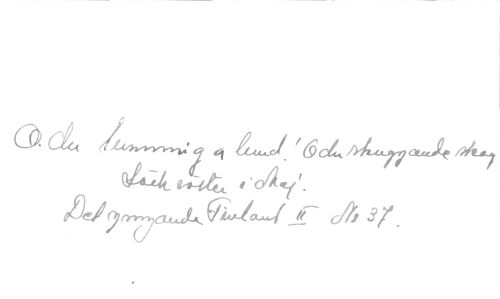 O. du lummiga lund! O du skuggande skog
Säck röster i skaj.
Det sjungande Finland II No 37.